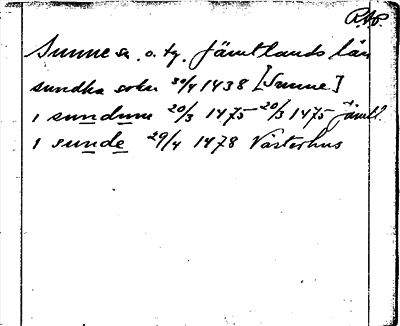 R.A.P.
Sunne sn. o. tg. Jämtlands län
sundha sokn 30/4 1438 [Sunne]
i sundum 20/3 1475 20/3 1475 Jämtl.
i sunde 29/4 1478 Västerhus